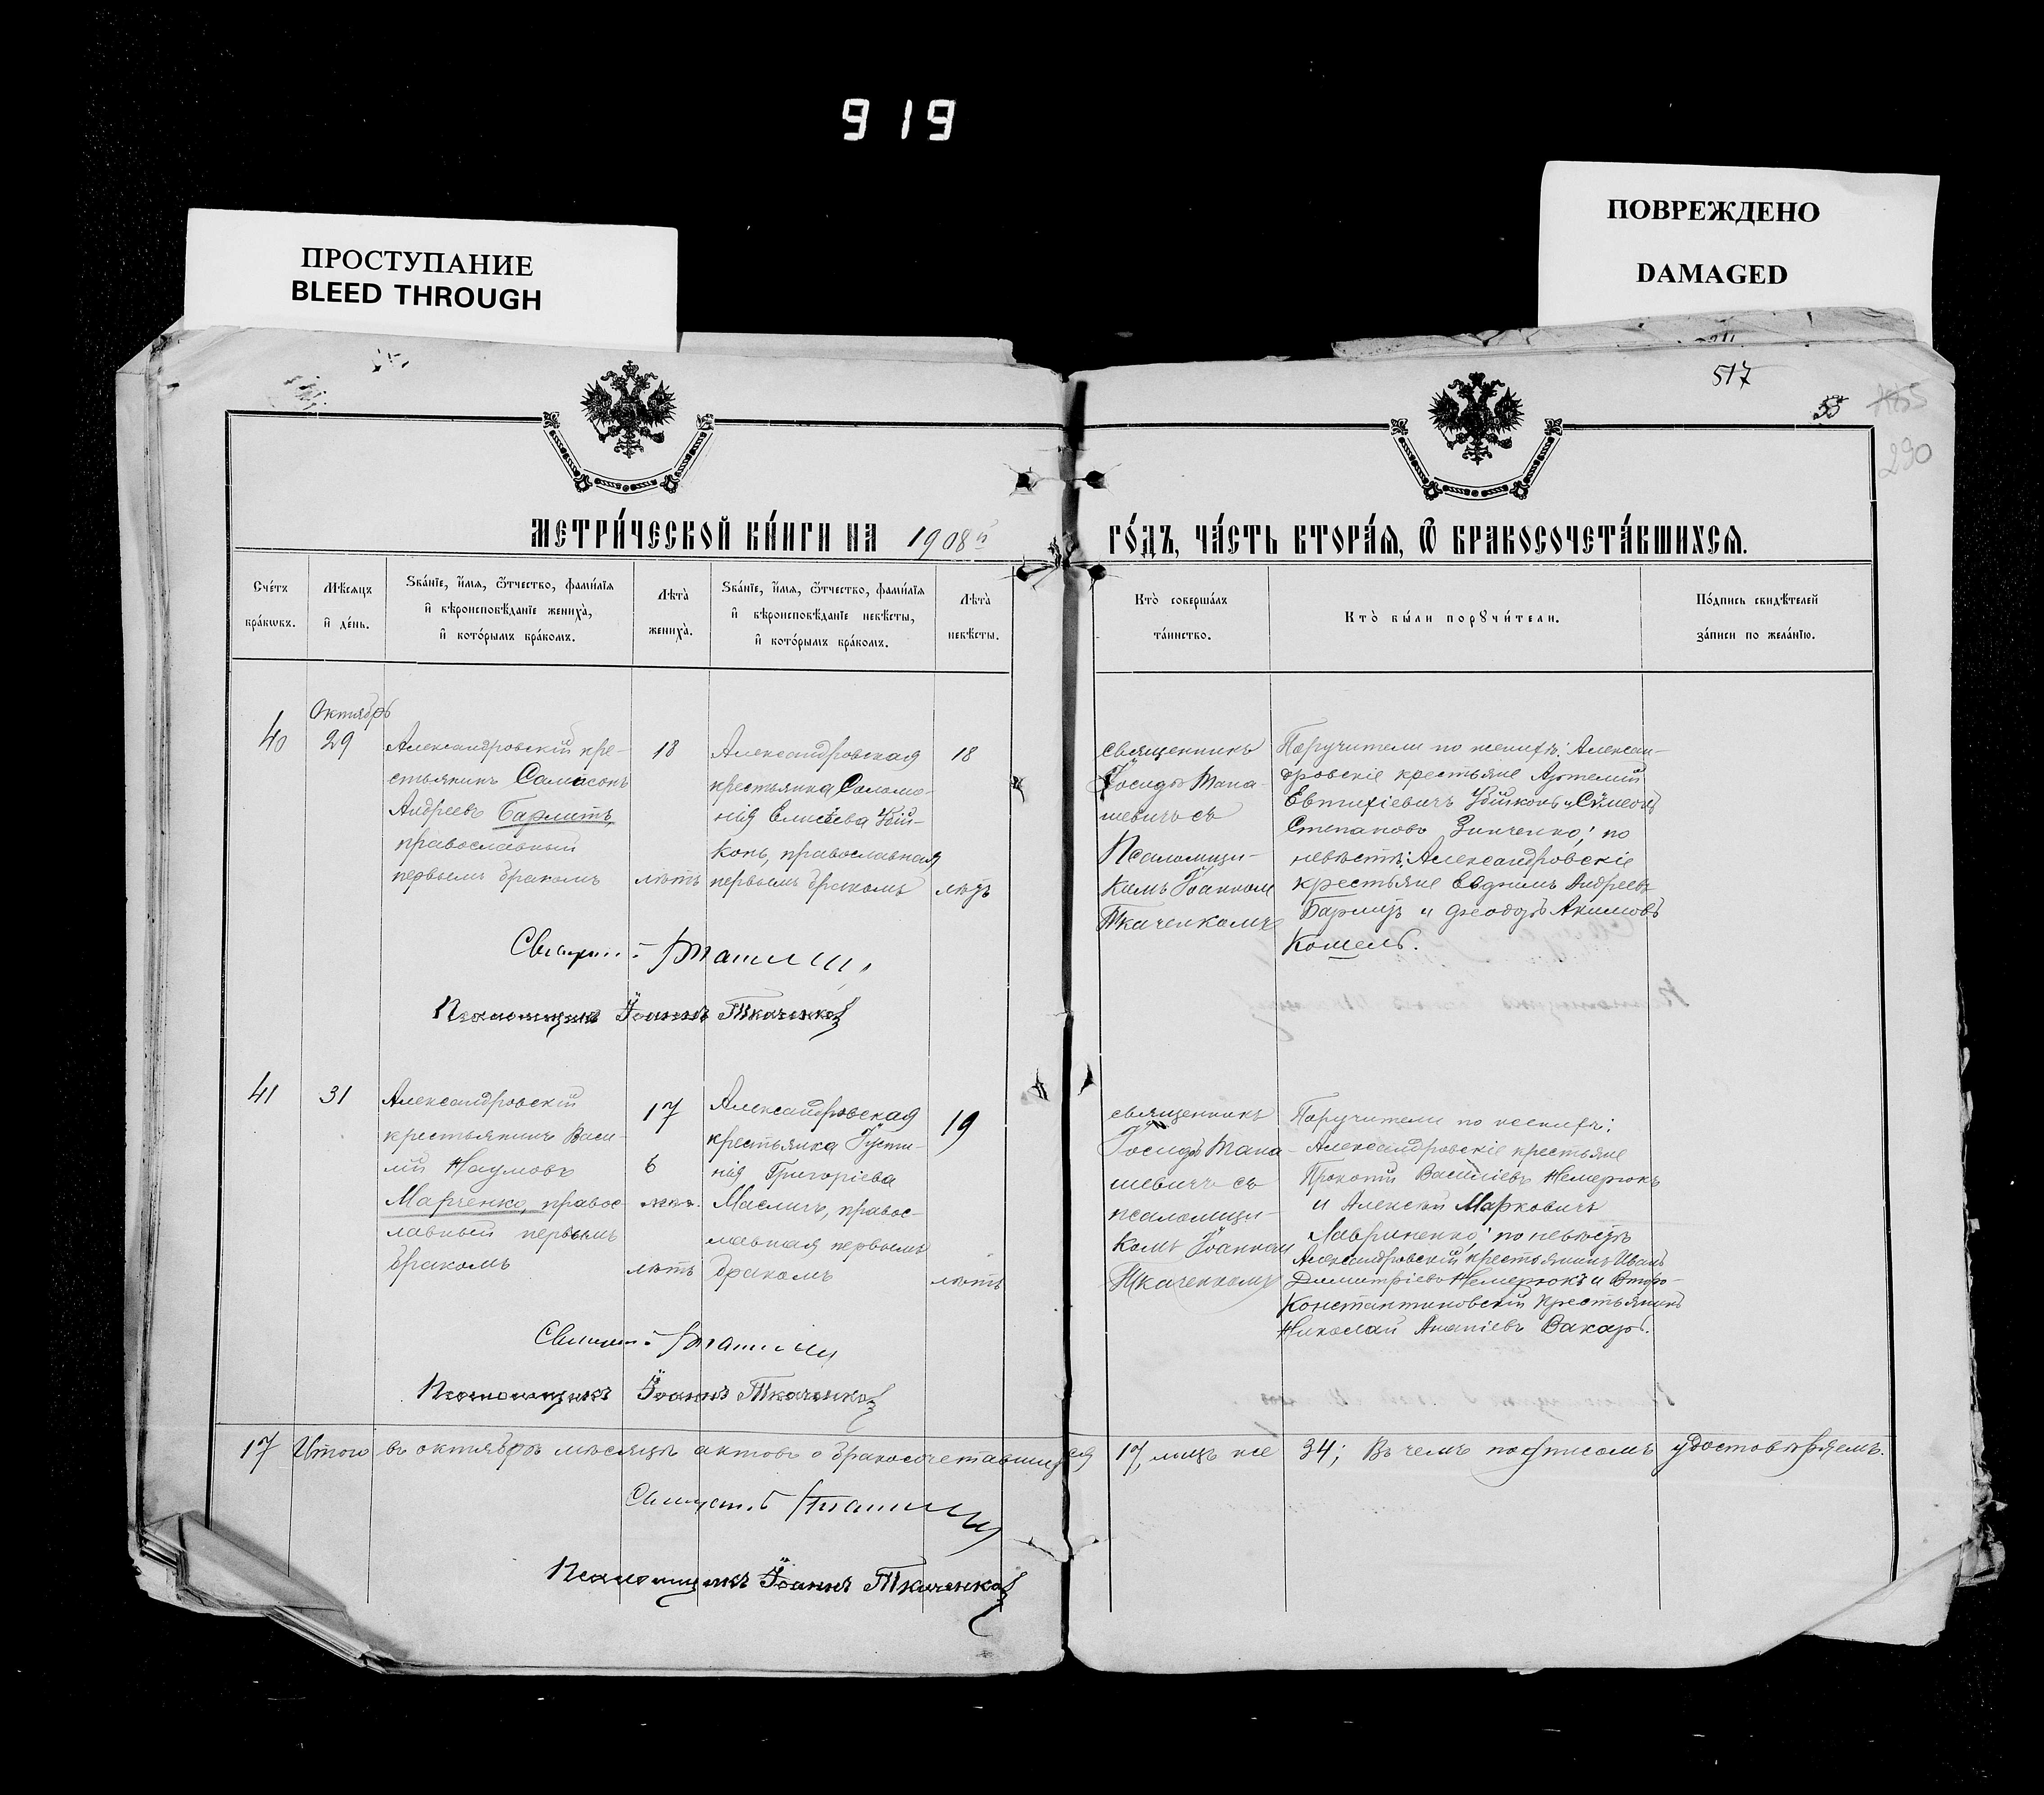 919
ПРОСТУПАНИЕ
BLEED THROUGH
ПОВРЕЖДЕНО
DAMAGED
517
55
290
МЕТРИ́ЧЕСКОЙ КНИ́ГИ НА 1908й ГО́ДЪ, ЧА́СТЬ ВТОРА́Я, Ѿ БРАКОСОЧЕТА́ВШИХСЯ.
Сче́тъ
бра́кѡвъ.
Мѣ́сяцъ
и҆ де́нь.
Ѕва́нїе, и҆́мя, ѻ҆́тчество, фами́лїя
и҆ вѣроисповѣ́данїе жениха̀,
и҆ кото́рымъ бра́комъ.
Лѣта̀
жениха̀.
Ѕва́нїе, и҆́мя, ѻ҆́тчество, фами́лїя
и҆ вѣроисповѣ́данїе невѣ́сты,
и҆ кото́рымъ бра́комъ.
Лѣта̀
невѣ́сты.
Кто̀ соверша́лъ
та́инство.
Кто̀ бы́ли порꙋчи́тели.
По́дпись свидѣ́телей
за́писи по жела́нїю.
Октябрь
40
29
Александровскій кре-
стьянинъ Самсонъ
Андреевъ Бармитъ,
православный
первымъ бракомъ
18
лѣтъ
Александровская
крестьянка Соломо-
нія Елисѣева Уйи-
конь, православная
первымъ бракомъ
18
лѣтъ
священникъ
Іосифъ Тана-
шевичъ съ
Псаломщи-
комъ Іоанном
Ткаченкомъ
Поручители по женихѣ: Алексан-
дровскіе крестьяне Артемій
Евтихіевичъ Уйиконь и Сѵмеонъ
Степановъ Зинченко; по
невѣстѣ: Александровскіе
крестьяне Евдокимъ Андреевъ
Бармитъ и Ѳеодоръ Акимовъ
Кошель.
Священ.
Псаломщикъ Іоаннъ Ткаченко
41
31
Александровскій
крестьянинъ Васи-
лій Наумовъ
Марченко, правос-
лавный первымъ
бракомъ
17
6
лѣтъ
Александровская
крестьянка Іусти-
нія Григоріева
Маслихъ, правос-
лавная первымъ
бракомъ
19
лѣтъ
священникъ
Іосифъ Тана-
шевичъ съ
псаломщи-
комъ Іоанном
Ткаченкомъ
Поручители по женихѣ:
Александровскіе крестьяне
Прокопій Василіевъ Немерюкъ
и Алексѣй Марковичъ
Лавриненко; по невѣстѣ
Александровскій крестьянинъ Иванъ
Димитріевъ Немерюкъ и Второ-
Константиновскій крестьянинъ
Николай Ананіевъ Вакаръ.
Священ.
Псаломщикъ Іоаннъ Ткаченко
17 Итого въ октябрѣ мѣсяцѣ актовъ о бракосочетавшихся 17, лицъ же 34; Въ чемъ подписомъ удостовѣряемъ.
Священ.
Псаломщикъ Іоаннъ Ткаченко